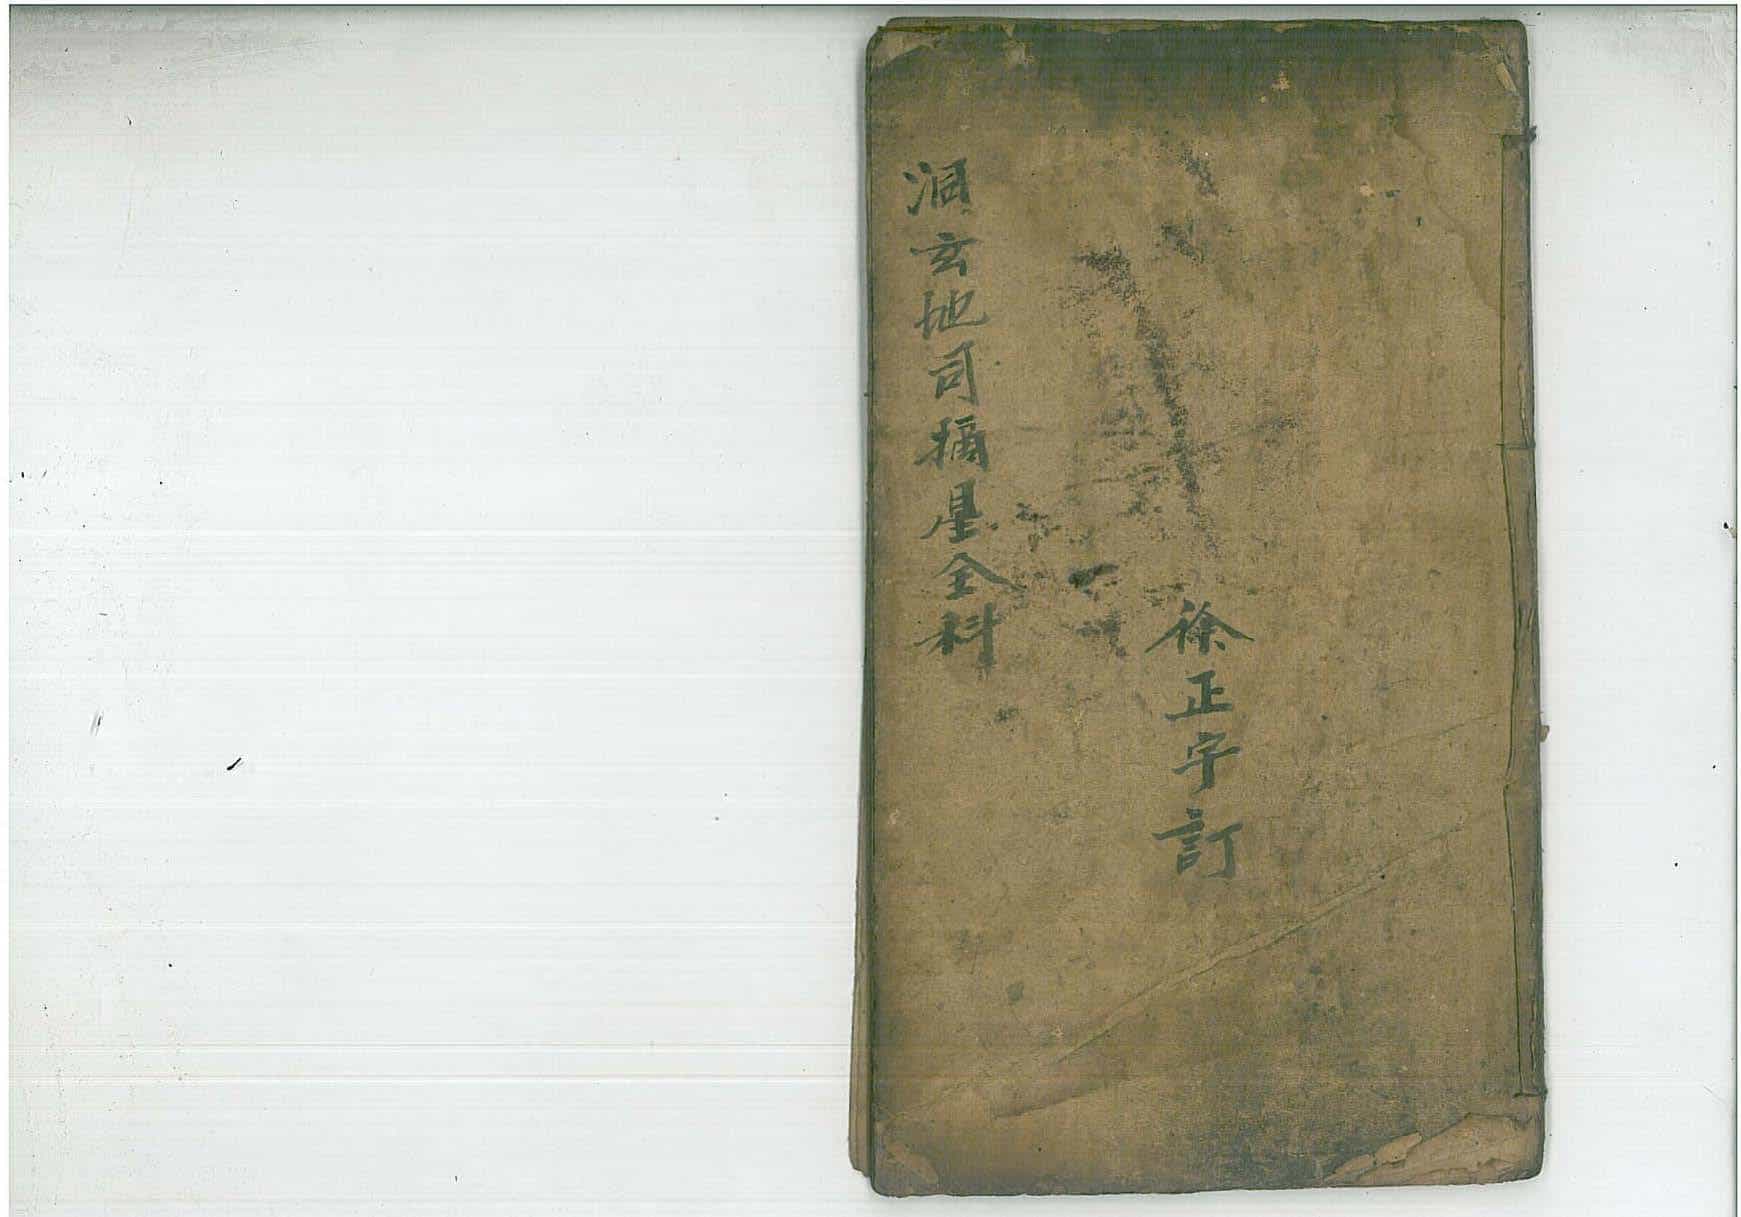 徐正字訂
洞玄地司摘星全科